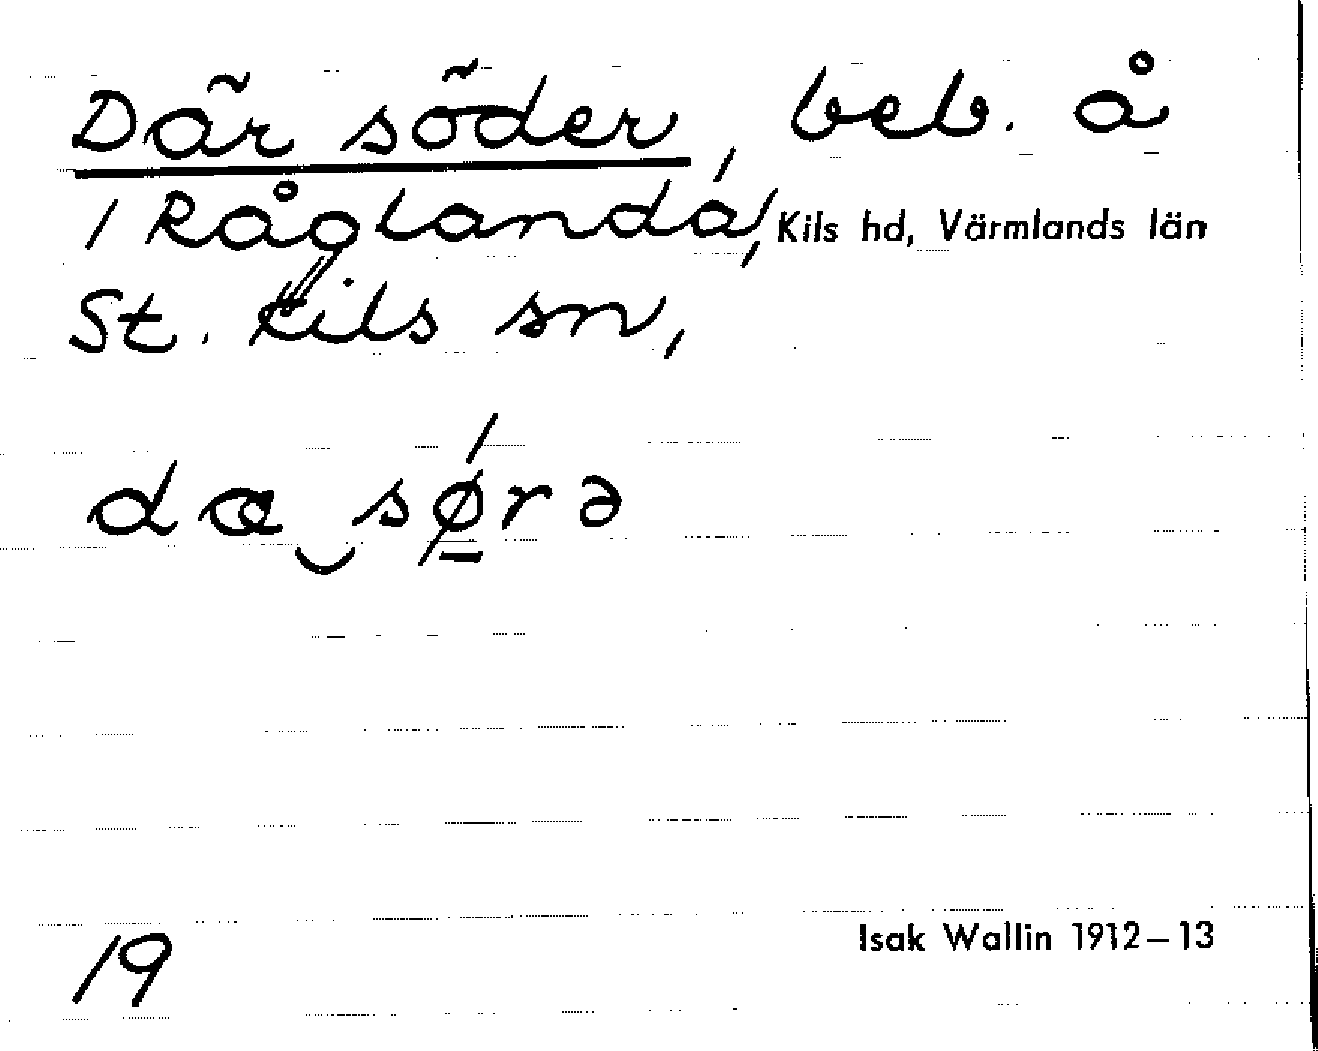 Där söder, beb. å
1 Råglanda, Kils hd, Värmlands län
St. Kils sn,
dœ‿sǿ̲rə
19
Isak Wallin 1912–13